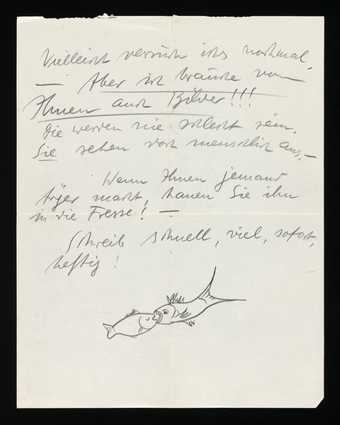 Vielleicht versuch ichs nochmal.
— Aber ich brauche von
Ihnen auch Bilder!!!
Die werden nie schlecht sein.
Sie sehen doch menschlich aus,—
Wenn Ihnen jemand
Ärger macht, hauen Sie ihn
in die Fresse! —
Schreib schnell, viel, sofort,
heftig!